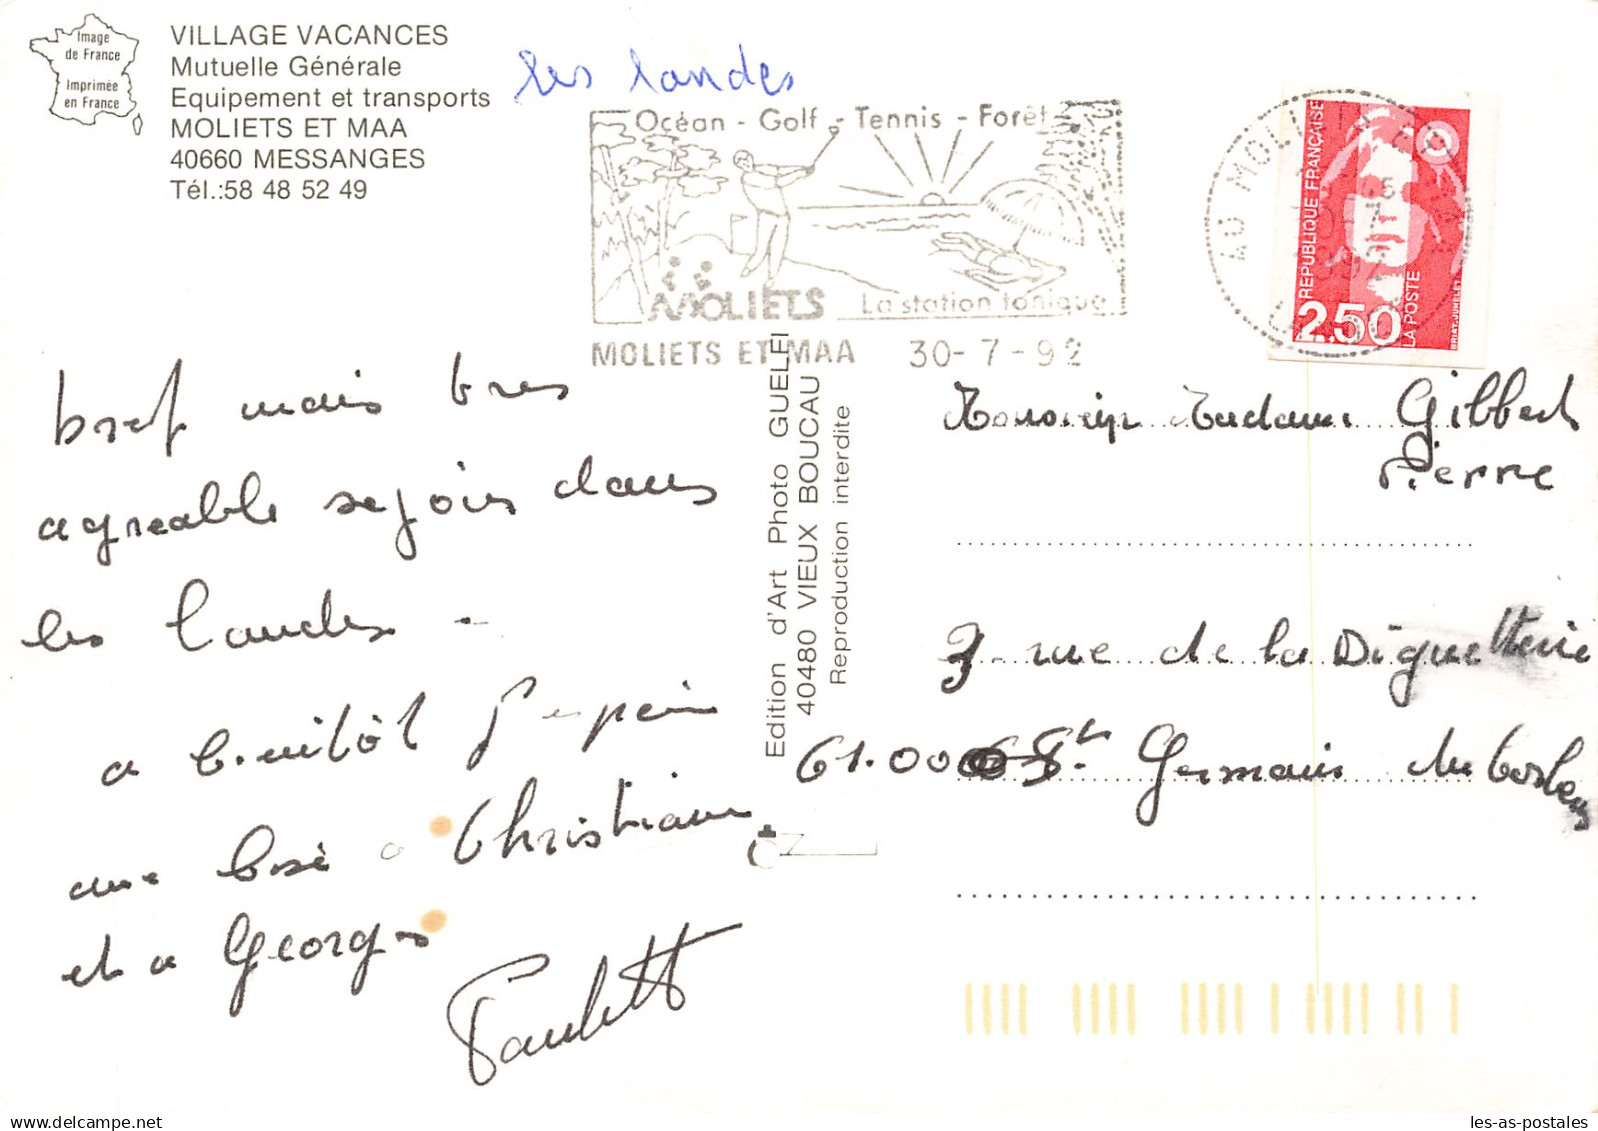 Image
de France
Imprimée
en France
VILLAGE VACANCES
Mutuelle Générale
Equipement et transports
MOLIETS ET MAA
40660 MESSANGES
Tél.:58 48 52 49
les landes
Océan - Golf - Tennis - Forêt
MOLIETS La station tonique
MOLIETS ET MAA 30-7-92
AU MOLI
REPUBLIQUE FRANÇAISE
2,50
LA POSTE
BRIAT.JUMELET
bref mais tres
agreable sejour dans
les landes -
a bientôt j'espère
une bisé a Christiane
et a Georges
Paulette
Edition d'Art Photo GUELFI
40480 VIEUX BOUCAU
Reproduction interdite
Monsieur Madame Gilbert
Pierre
7 rue de la Diguetterie
61.000 St Germain du Corbeis
les-as-postales